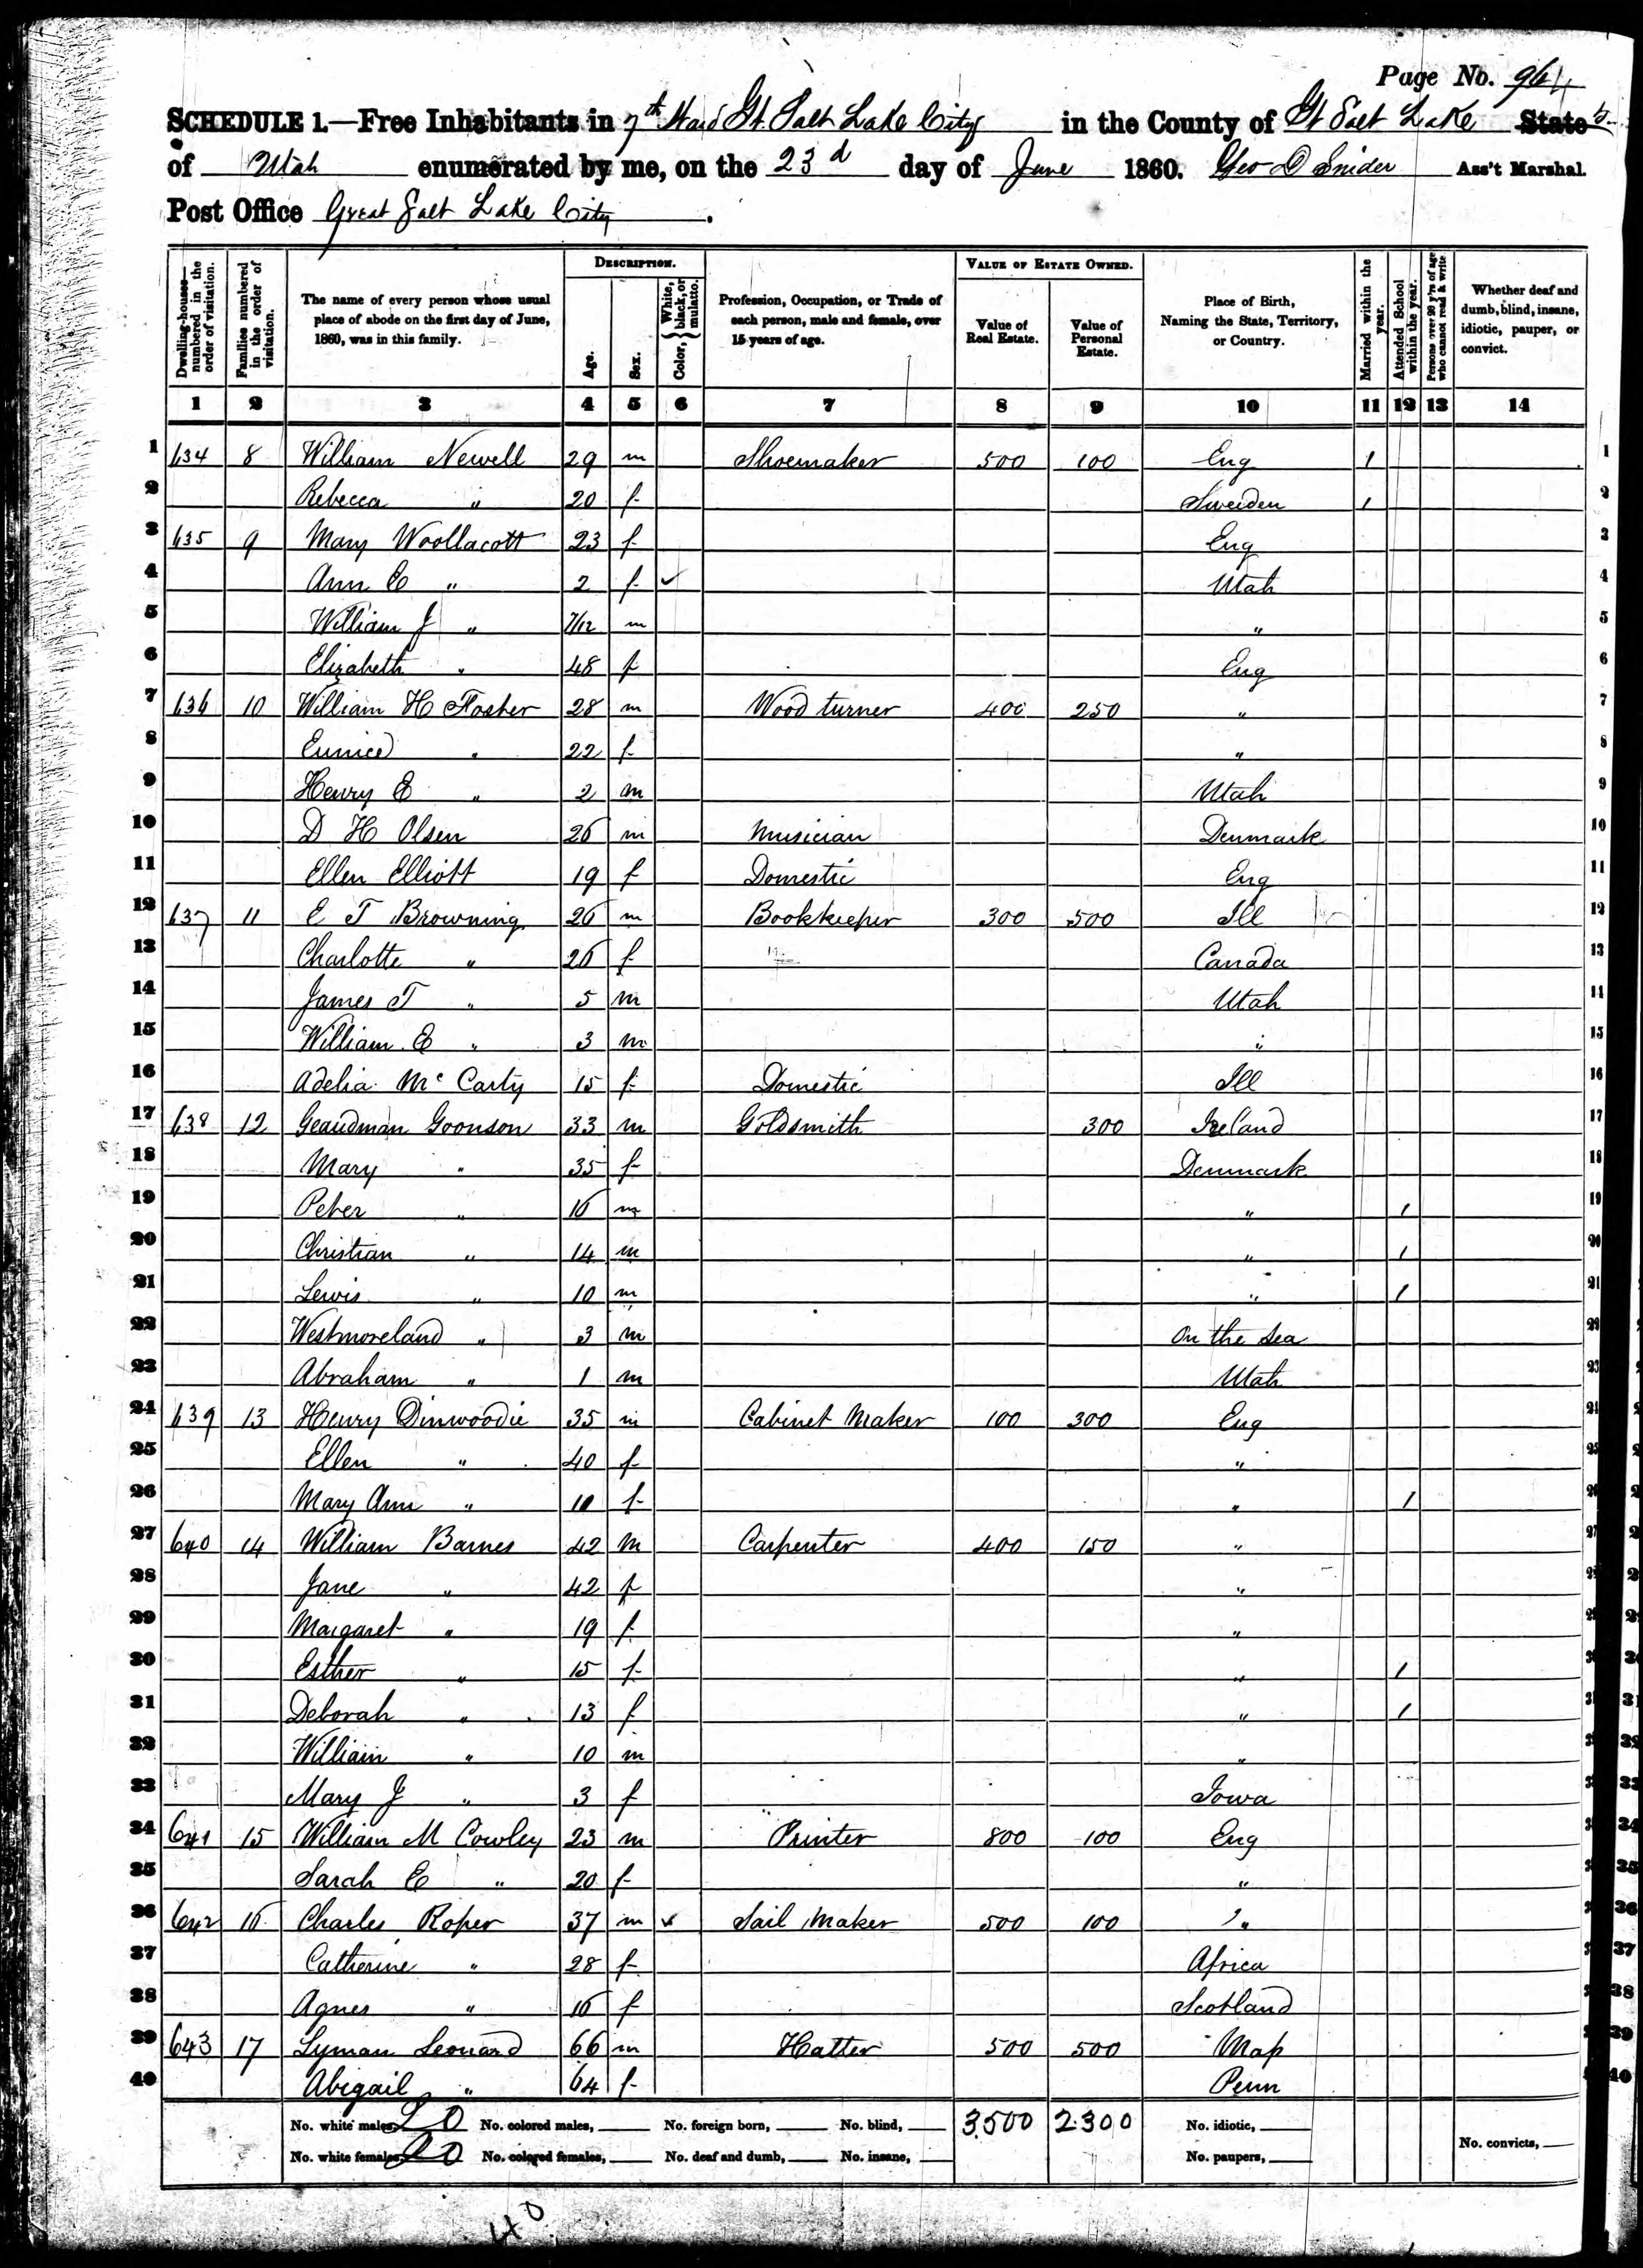 Page No. 964
SCHEDULE 1.—Free Inhabitants in 7th Ward Gt. Salt Lake City in the County of Gt Salt Lake State
of Utah enumerated by me, on the 23d day of June 1860. Geo D Snider Ass't Marshal.
Post Office Great Salt Lake City.
Dwelling-houses—numbered in the order of visitation.
Families numbered in the order of visitation.
The name of every person whose usual place of abode on the first day of June, 1860, was in this family.
DESCRIPTION.
Age.
Sex.
Color, { White, black, or mulatto.
Profession, Occupation, or Trade of each person, male and female, over 15 years of age.
VALUE OF ESTATE OWNED.
Value of Real Estate.
Value of Personal Estate.
Place of Birth, Naming the State, Territory, or Country.
Married within the year.
Attended School within the year.
Persons over 20 y'rs of age who cannot read & write.
Whether deaf and dumb, blind, insane, idiotic, pauper, or convict.
1 2 3 4 5 6 7 8 9 10 11 12 13 14
1 634 8 William Newell 29 m Shoemaker 500 100 Eng 1 1
2 Rebecca " 20 f Sweiden 1 2
3 635 9 Mary Woollacott 23 f Eng 3
4 Ann E " 2 f ✓ Utah 4
5 William J " 7/12 m " 5
6 Elizabeth " 48 f Eng 6
7 636 10 William H Fosher 28 m Wood turner 400 250 " 7
8 Eunice " 22 f " 8
9 Henry E " 2 m Utah 9
10 D H Olsen 26 m Musician Denmark 10
11 Ellen Elliott 19 f Domestic Eng 11
12 637 11 E T Browning 26 m Bookkeeper 300 500 Ill 12
13 Charlotte " 26 f Canada 13
14 James T " 5 m Utah 14
15 William E " 3 m " 15
16 Adelia McCarty 15 f Domestic Ill 16
17 638 12 Geaudman Goonson 33 m Goldsmith 300 Ireland 17
18 Mary " 35 f Denmark 18
19 Peter " 16 m " 1 19
20 Christian " 14 m " 1 20
21 Lewis " 10 m " 1 21
22 Westmoreland " 3 m On the Sea 22
23 Abraham " 1 m Utah 23
24 639 13 Henry Dinwoodie 35 m Cabinet Maker 100 300 Eng 24
25 Ellen " 40 f " 25
26 Mary Ann " 10 f " 1 26
27 640 14 William Barnes 42 m Carpenter 400 150 " 27
28 Jane " 42 f "
29 Margaret " 19 f "
30 Esther " 15 f " 1
31 Deborah " 13 f " 1
32 William " 10 m "
33 Mary J " 3 f Iowa
34 641 15 William M Cowley 23 m Printer 800 100 Eng
35 Sarah E " 20 f "
36 642 16 Charles Roper 37 m ✓ Sail Maker 500 100 "
37 Catherine " 28 f Africa
38 Agnes " 16 f Scotland
39 643 17 Lyman Leonard 66 m Hatter 500 500 Mass
40 Abigail " 64 f Penn
No. white males, 20 No. colored males, No. foreign born, No. blind, 3500 2300 No. idiotic,
No. white females, 20 No. colored females, No. deaf and dumb, No. insane, No. paupers, No. convicts,
40